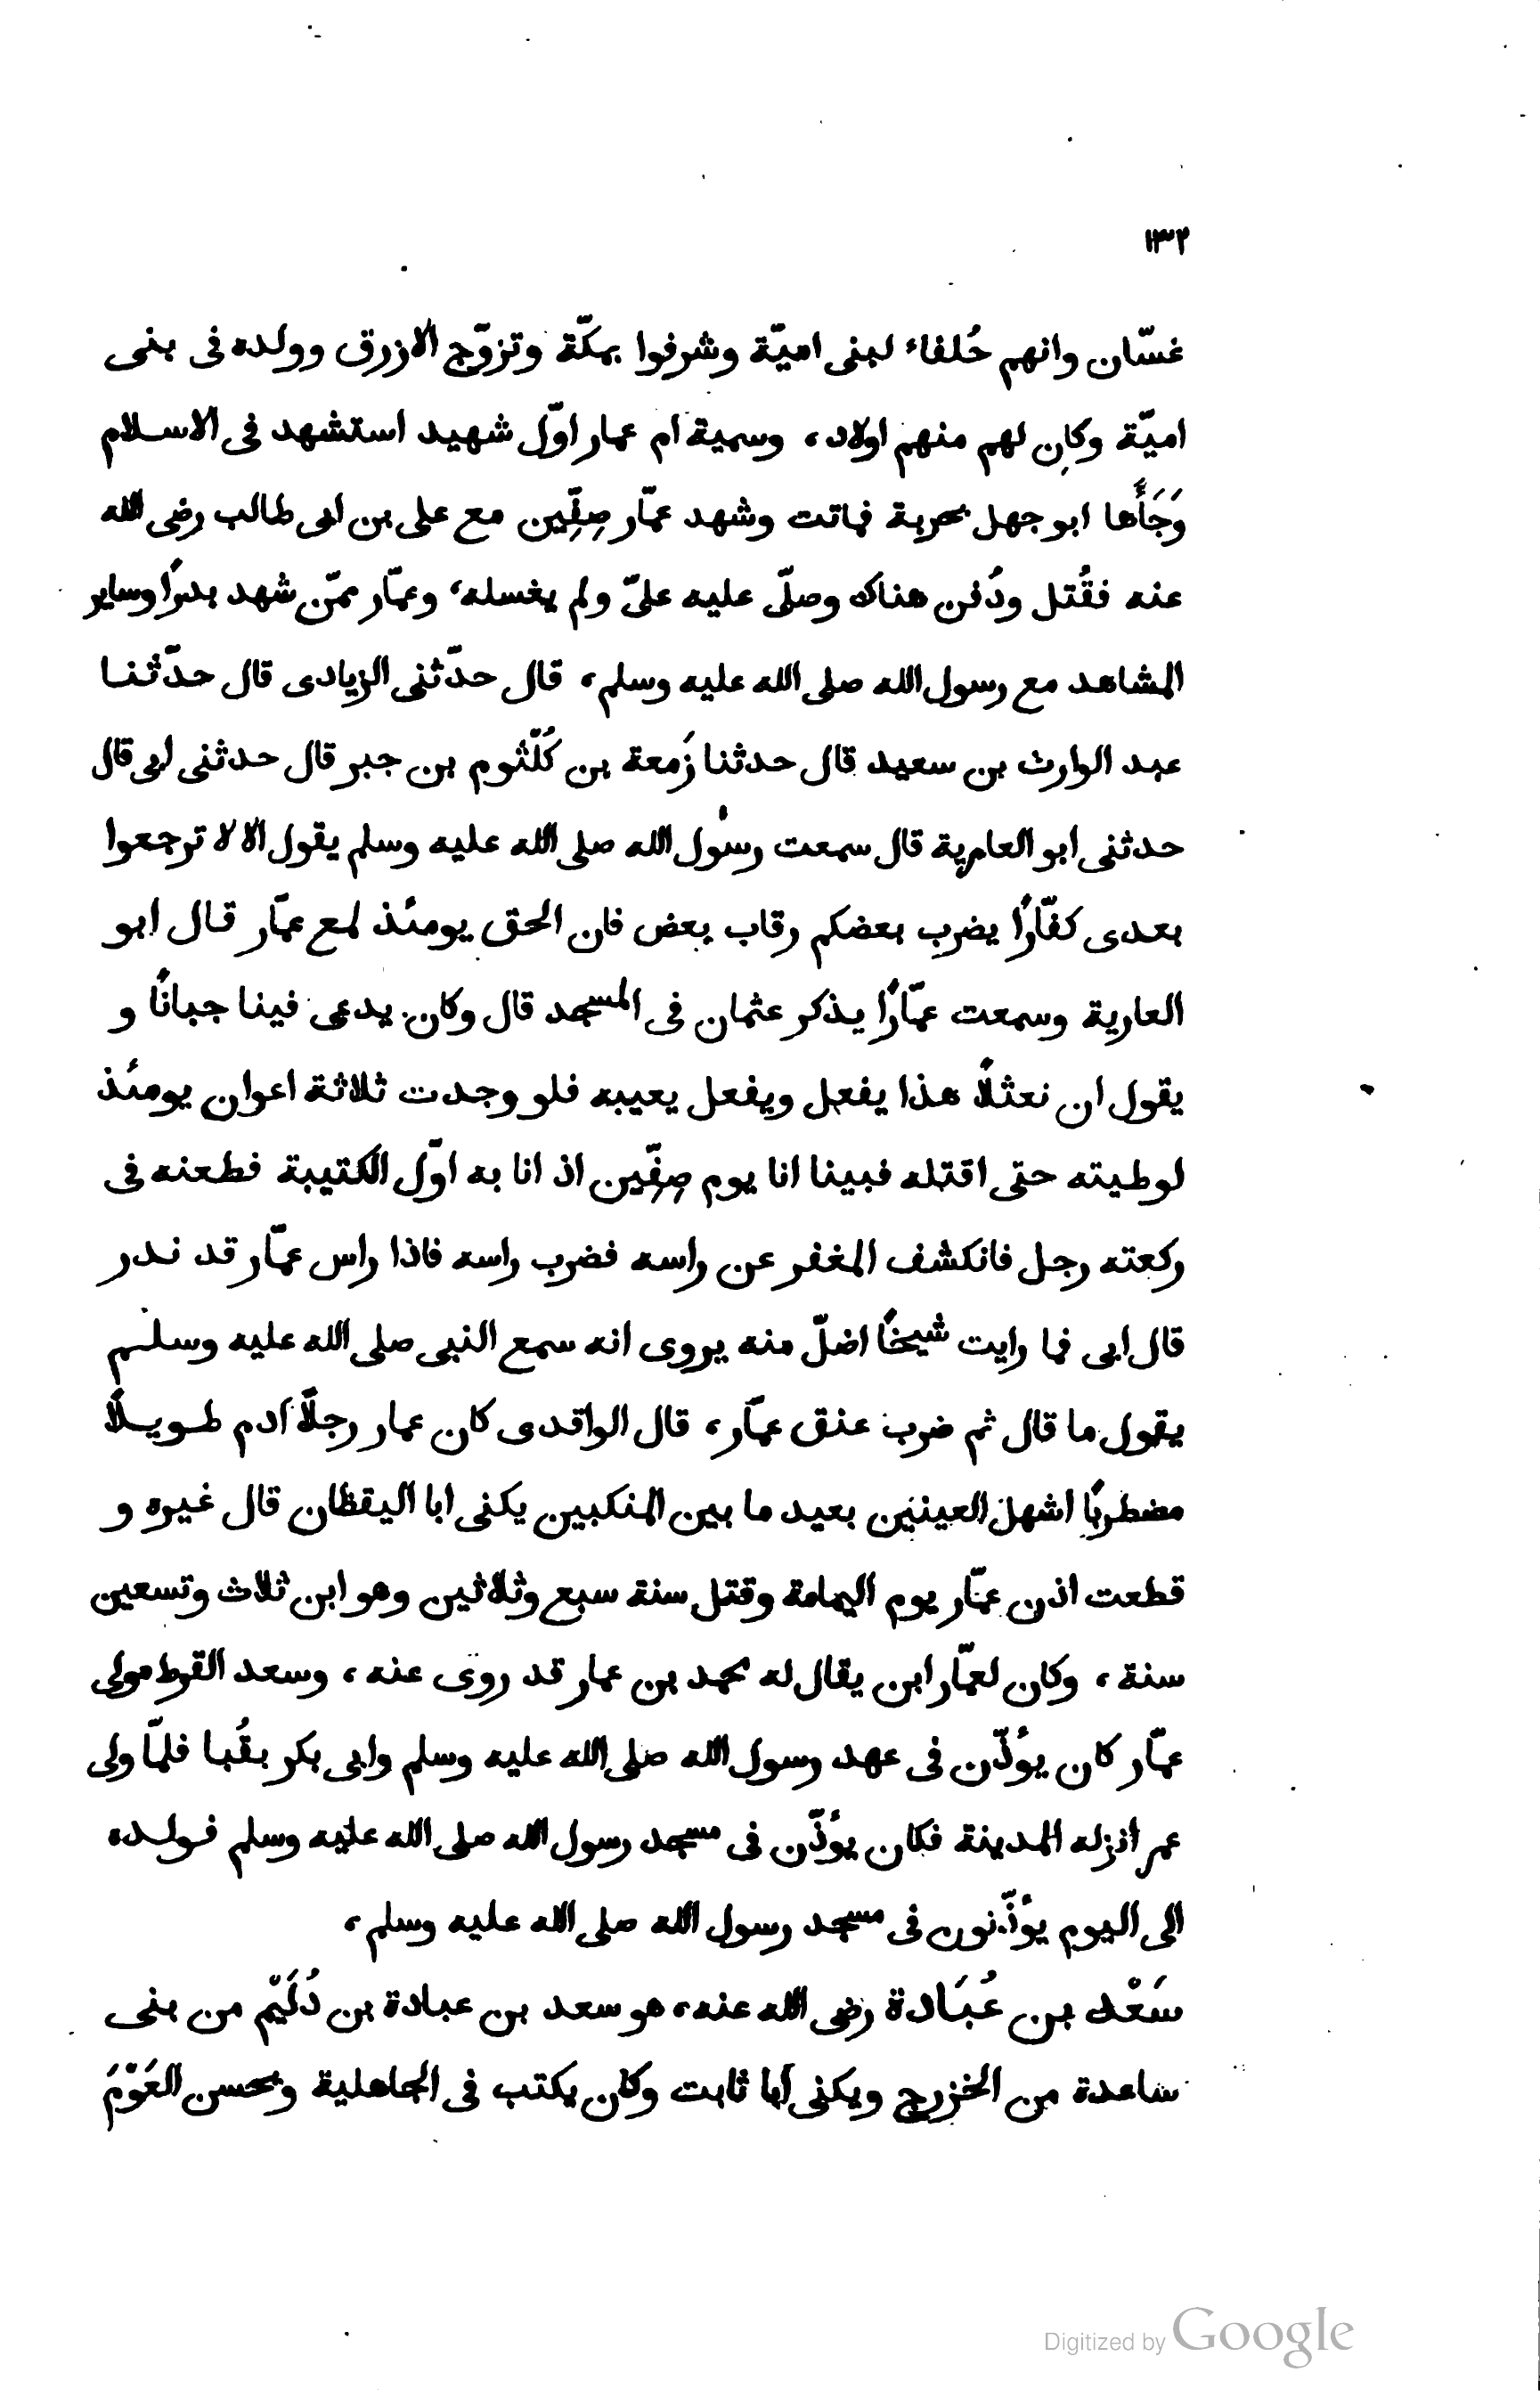 ١٣٢
غسّان وانهم حُلفاء لبنى اميّة وشرفوا بمكّة وتزوّج الازرق وولده فى بنى
اميّة وكان لهم منهم اولاد، وسمية ام عمار اوّل شهيد استشهد فى الاسلام
وَجَأَها ابو جهل بحربة فماتت وشهد عمّار صِفِّين مع على بن ابى طالب رضى الله
عنه فقُتل ودُفن هناك وصلّى عليه علىّ ولم يغسله، وعمّار ممّن شهد بدرًا وساير
المشاهد مع رسول الله صلى الله عليه وسلم، قال حدّثنى الزيادى قال حدّثنا
عبد الوارث بن سعيد قال حدثنا زَمعة بن كُلّثوم بن جبر قال حدثنى ابى قال
حدثنى ابو العارية قال سمعت رسول الله صلى الله عليه وسلم يقول الا لا ترجعوا
بعدى كفّارًا يضرب بعضكم رقاب بعض فان الحق يومئذ لمع عمّار قال ابو
العارية وسمعت عمّارًا يذكر عثمان فى المسجد قال وكان يدعى فينا جبانًا و
يقول ان نعثلًا هذا يفعل ويفعل يعيبه فلو وجدت ثلاثة اعوان يومئذ
لوطيته حتى اقتله فبينا انا يوم صِفِّين اذ انا به اوّل الكتيبة فطعنه فى
ركعته رجل فانكشف المغفر عن راسه فضرب راسه فاذا راس عمّار قد ندر
قال ابى فما رايت شيخًا اضلّ منه يروى انه سمع النبى صلى الله عليه وسلم
يقول ما قال ثم ضرب عنق عمّار، قال الواقدى كان عمار رجلًا آدم طويلًا
مضطربًا اشهل العينين بعيد ما بين المنكبين يكنى ابا اليقظان قال غيره و
قطعت اذن عمّار يوم اليمامة وقتل سنة سبع وثلاثين وهو ابن ثلاث وتسعين
سنة، وكان لعمّار ابن يقال له محمد بن عمار قد روى عنه، وسعد القرط مولى
عمّار كان يوُذّن فى عهد رسول الله صلى الله عليه وسلم وابى بكر بقُبا فلمّا ولى
عمر انزله المدينة فكان يوُذّن فى مسجد رسول الله صلى الله عليه وسلم فولده
الى اليوم يوُذّنون فى مسجد رسول الله صلى الله عليه وسلم،
سَعْد بن عُبَادة رضى الله عنه، هو سعد بن عبادة بن دُلَيْم من بنى
ساعدة من الخزرج ويكنى ابا ثابت وكان يكتب فى الجاهلية ويحسن العَوْمَ
Digitized by Google